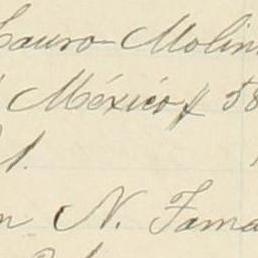 Lauro Molin
México, 58
1.
n N. Tama